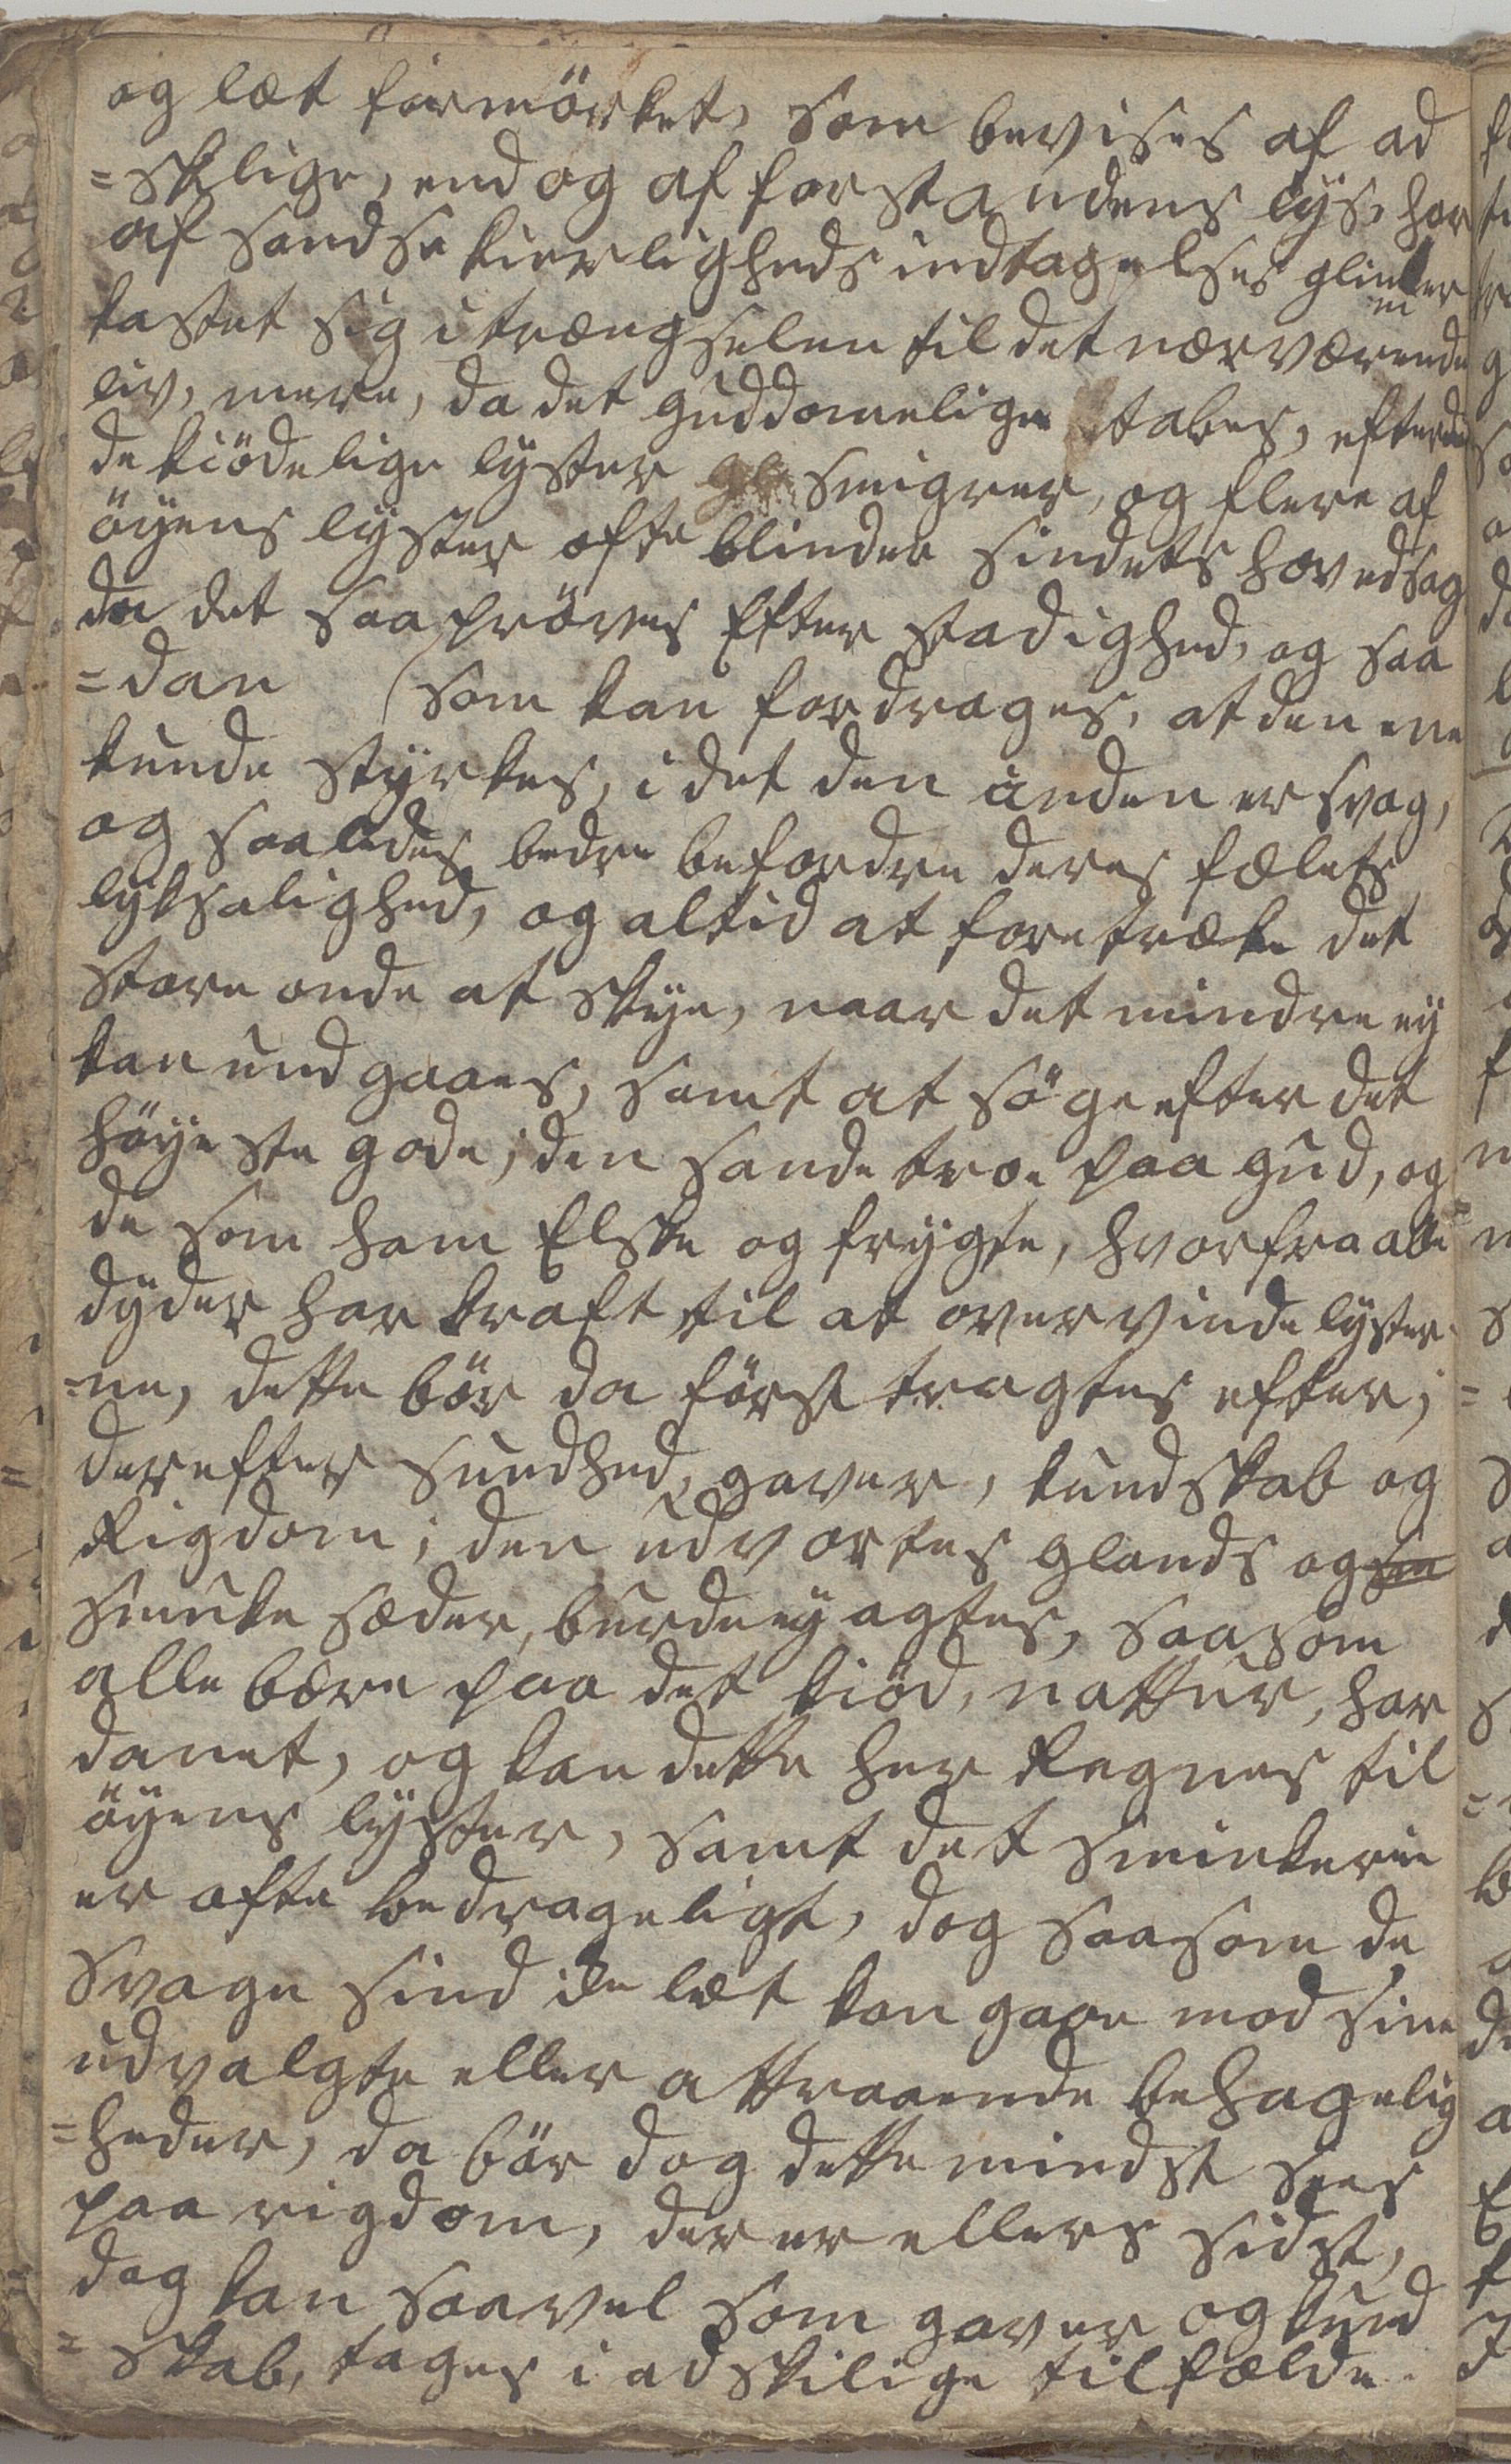 og læt formörket, som bevises af ad
=skilige, end og af forstandens lys, har
af sandse kierligheds indtagelses
kastet sig i trængselen til det nærværende
liv, mere, da det guddommelige tabes, efterdi
de kiödelige lyster smigrer, og flere af
öyens lyster ofte blinder sindets hovedsag
da det saa pröves Efter stadighed, og saa
=dan som kan fordrages, at den ene
kunde styrkes, i det den anden er svag,
og saaledes bedre befordre deres fælets
lyksalighed, og altid at foretræke det
store onde at skye, naar det mindre ey
kan undgaaes, samt at söge efter det
höyeste gode; den sande troe paa gud, og
de som ham Elske og frygte, hvorfra alle
dyder har kraft til at overvinde lyster
=ne, dette bör da först tragtes efter;
derefter sundhed, gaver, kundskab og
Rigdom; den udvortes glands og
smuke sæder, burde ey agtes, saasom
alle bære paa det kiöd, nattur, har
danet, og kan dette her Regnes til
öyens lyster, samt det sminkerie
er ofte bedrageligt, dog saasom de
svage sind ike læt kan gaae mod sine
udvalgte eller attraaende behagelig
=heder, da bör dog dette mindst sees
paa rigdom, der er ellers sidst,
dog kan saavel som gaver og kund
=skab, tages i adskilige tilfælde.